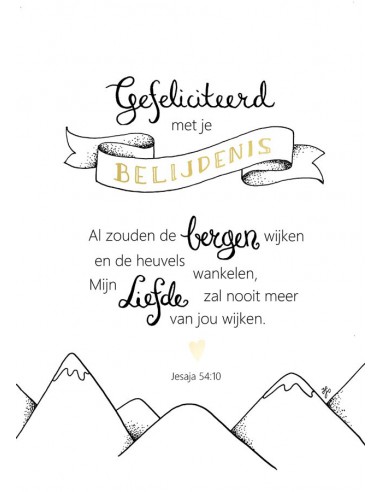 Gefeliciteerd
met je
BELIJDENIS
Al zouden de bergen wijken
en de heuvels wankelen,
Mijn Liefde zal nooit meer
van jou wijken.
Jesaja 54:10